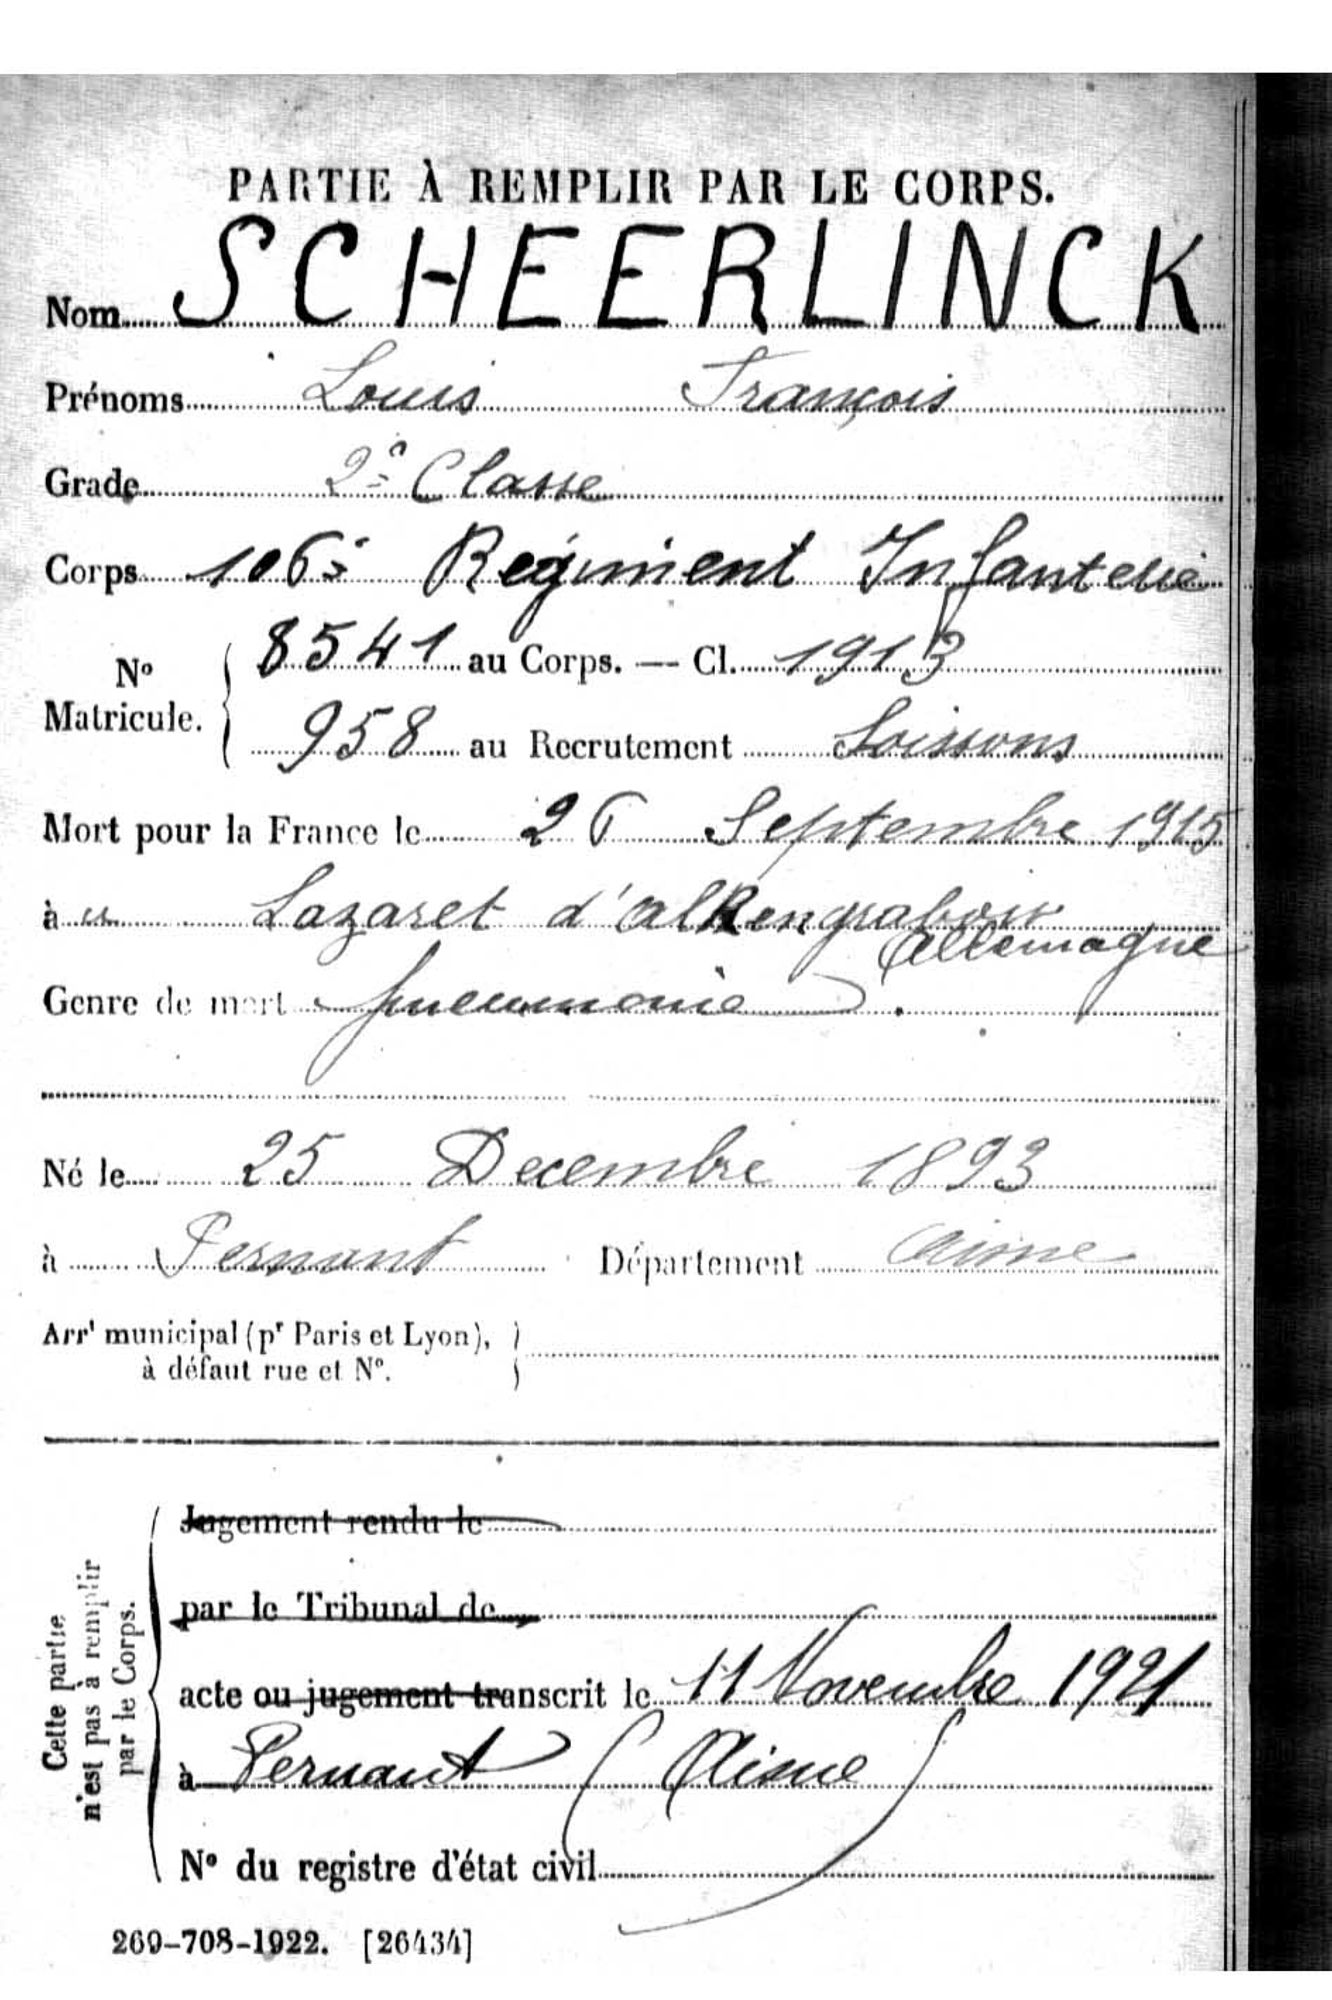 PARTIE À REMPLIR PAR LE CORPS.
Nom SCHEERLINCK
Prénoms Louis François
Grade 2e Classe
Corps 106e Régiment Infanterie
No Matricule. 8541 au Corps. — Cl. 1913
958 au Recrutement Soissons
Mort pour la France le 26 Septembre 1915
à Lazaret d'alkengrabow
allemagne
Genre de mort pneumonie
Né le 25 Decembre 1893
à Pernant Département Aisne
Arrt municipal (pr Paris et Lyon),
à défaut rue et No.
Cette partie
n'est pas à remplir
par le Corps.
Jugement rendu le
par le Tribunal de
acte ou jugement transcrit le 11 Novembre 1921
à Pernant (Aisne)
No du registre d'état civil
269-708-1922. [26434]